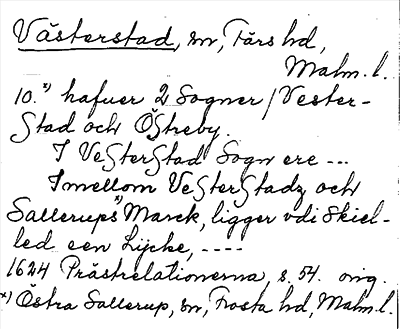 Västerstad, sn, Färs hd,
Malm. l.
10.*) hafuer 2 Sogner / Vester-
Stad och Östreby.
I VeSterStad Sogn ere ---
Imellom VeSterStadz och
Sallerups*) Marck, ligger vdi Skiel-
led een Lycke, ----
1624 Prästrelationerna, s. 54. omg.
*) Östra Sallerup, sn, Frosta hd, Malm. l.